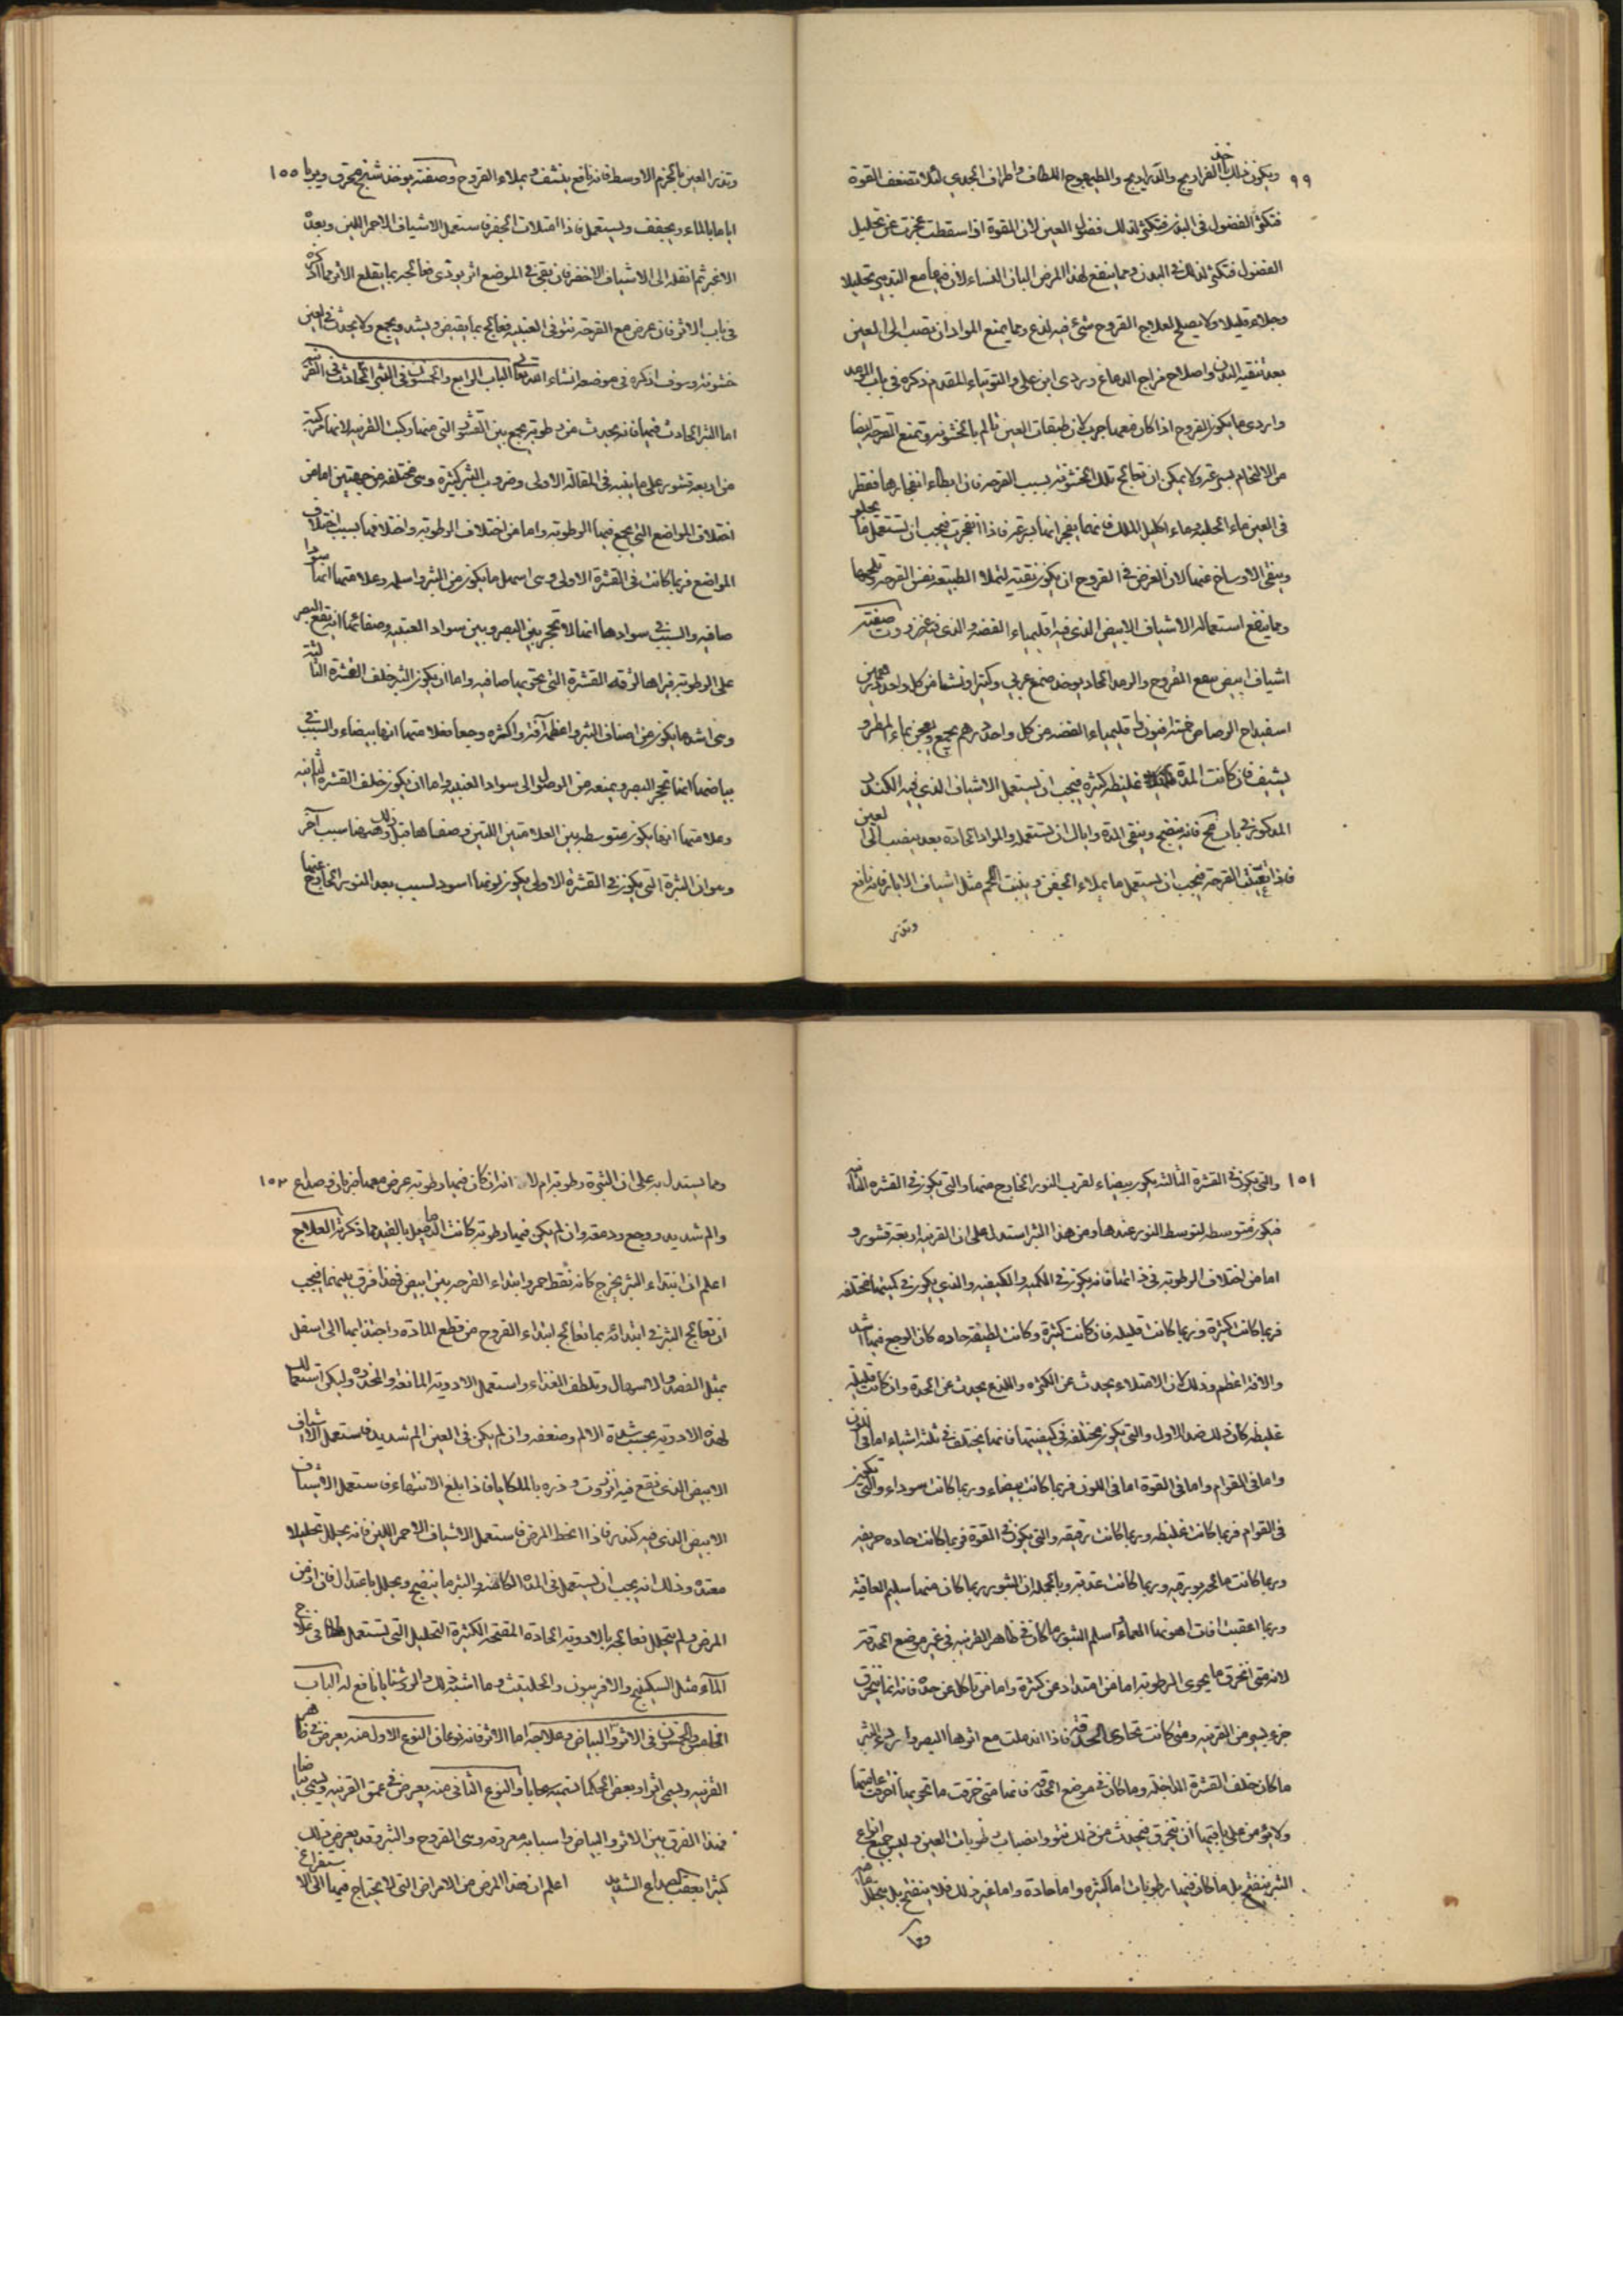 ٩٩
ويكون ذلك الفراريج والدراريج والطيهوج اللطاف واطراف الجدي لئلا تضعف القوة
فتكثر الفضول في البدن فتكثر لذلك فضول العين لان القوة اذا سقطت عجزت عن تحليل
الفضول فتكثر لذلك في البدن ومما ينفع لهذا المرض البان النساء لان فيها مع التبريد تحليلا
وجلاء قليلا ولا يصلح لعلاج القروح شئ فيه لذع ومما يمنع المواد ان تصب الى العين
بعد تنقية البدن واصلاح مزاج الدماغ والتوتياء المقدم ذكره في باب الرمد
واردى ما يكون القروح اذا كان معها جرب لان طبقات العين تالم بالخشونة وتمنع القرحة ايضا
من الالتحام بسرعة ولا يمكن ان تعالج تلك الخشونة بسبب القرحة فان ابطاء انفجارها فقطر
في العين ماء الحلبة وماء اكليل الملك فانهما يفجرانها بسرعة فاذا انفجرت فيجب ان تستعمل ما يجلو
وينقى الاوساخ عنها لان الغرض في القروح ان يكون نقية لتملا الطبيعة نفس القرحة وتلحمها
ومما ينفع استعماله الاشياف الابيض الذي فيه اقليمياء الفضة والذي فيه عنزروت صفته
اشياف ابيض ينفع القروح والرمد الحاد يوخذ صمغ عربي وكثيرا ونشا من كل واحد درهمين
اسفيداج الرصاص خمسة افيون اقليمياء الفضة من كل واحد درهم يجمع ويعجن بماء المطر و
يشيف فان كانت المدة غليظة كثيرة فيجب ان يستعمل الاشياف الذي فيه الكندر
المذكور في باب فانه ينضج وينقي المدة واياك ان تستعمله والمواد الحادة بعد ينصب الى العين
فاذا تنقت القرحة فيجب ان يستعمل ما يملاء الحفر وينبت اللحم مثل اشياف الابار فانه نافع
وتذر
١٥٥
وتذر العين بالحزم الاوسط فانه نافع ينشف ويملاء القروح وصفته يوخذ شنج محرق ويربا
اياما بالماء ويجفف ويستعمل فاذا امتلات الحفر فاستعمل الاشياف الاحمر اللين وبعده
الاغبر ثم انقله الى الاشياف الاخضر فان بقي في الموضع اثر يوذي فعالجه بما يقلع الاثر مما اذكره
في باب الاثر فان عرض مع القرحة نتو في العنبية فعالج بما يقبض ويشد ويجمع ولا يحدث في العين
خشونة وسوف اذكره في موضعه انشاء الله تعالى الباب الرابع والخمسون في البثر الحادث في القرنية
اما البثر الحادث فيها فانه يحدث من رطوبة يجمع بين القشور التي منها ركبت القرنية لانها مركبة
من اربعة قشور على ما بينه في المقالة الاولى وضروب البثر كثيرة وهى مختلفة من جهتين اما من
اختلاف المواضع التي يجمع فيها الرطوبة واما من اختلاف الرطوبة واختلافها بسبب اختلاف
المواضع فربما كانت في القشرة الاولى وهى اسهل ما يكون من البثر واسلمه وعلامتها انها سودا
صافيه والسبب في سوادها انها لا تحجر بين البصر وبين سواد العنبية وصفائها انه يقع البصر
على الرطوبة فيراها لرقة القشرة التي تحويها صافيه واما ان يكون البثر خلف القشرة الثالثة
وهى اشد ما يكون من اصناف البثر واعظمه آفة واكثره وجعا فعلامتها انها بيضاء والسبب في
بياضها انها تحجر البصر ويمنعه من الوصول الى سواد العنبيه واما ان يكون خلف القشرة الثانيه
وعلامتها انها يكون متوسطه بين العلامتين اللتين وصفناهما قبل ذلك وههنا سبب آخر
وهو ان البثرة التي يكون في القشرة الاولى يكون لونها اسود لسبب بعد النور الخارج عنها
١٥١
والتي يكون في القشرة الثالثة يكون بيضاء لقرب النور الخارج منها والتي يكون في القشرة الثانيه
فيكون متوسطه لتوسط النور عندها ومن هذا البثر استدل على ان القرنية اربعة قشور و
اما من اختلاف الرطوبة في ذاتها فانه يكون في الكمية والكيفية والذي يكون في كميتها مختلفه
فربما كانت كثيرة وربما كانت قليله فان كانت كثيرة وكانت لطيفة حاده كان الوجع فيها اشد
والافة اعظم وذلك لان الامتلاء يحدث عن الكثرة واللذع يحدث عن الحدة وان كانت قليله
غليظه كان ذلك ضد الاول والتي يكون مختلفة في كيفيتها فانها يختلف في ثلثة اشياء اما في اللون
واما في القوام واما في القوة اما في اللون فربما كانت بيضاء وربما كانت سوداء والتي تكون
في القوام فربما كانت غليظه وربما كانت رقيقه والتي يكون في القوة فربما كانت حاده حريفه
وربما كانت مالحه بورقيه وربما كانت عذبة وبالجملة ان البثور ربما كان منها سليم العاقبة
وربما اعقبت افات اهونها العماء واسلم البثور ما كان في ظاهر القرنيه في غير موضع الحدقة
لانه متى انخرق ما يحوى الرطوبه اما من امتداد عن كثرة واما من تاكل عن حدة فانه انما ينخرق
جزء يسير من القرنيه ومتى كانت تحاذى الحدقة فاذا اندملت مع اثرها البصر واردى البثر
ما كان خلف القشرة الداخلة وما كان في موضع الحدقة فانها متى خرقت ما تحويها انخرقت عامتها
ولا يؤمن على باقيها ان ينخرق فيحدث من ذلك نتوو انصباب رطوبات العين وليس جميع انواع
البثر ينفتح بل ما كان فيها رطوبات اما كثيره واما حادة واما غير ذلك فلا ينفتح بل يتحلل
ومما
١٥٢
ومما يستدل به على ان البثرة رطوبة ام لا انه ان كان فيها رطوبة عرض معها ضربان وصداع
والم شديد ووجع ودمعة وان لم يكن فيها رطوبة كانت الدلائل بالضد مما ذكرته العلاج
اعلم ان ابتداء البثر يخرج كانه نقط حمر وابتداء القرحة بين ابيض فهذا فرق بينهما فيجب
ان تعالج البثر في ابتدائه بما تعالج ابتداء القروح من قطع المادة واجتذابها الى اسفل
بمثل الفصد والاسهال وتلطف الغذاء واستعمل الادوية المانعة والمخدره وليكن استعمالك
لهذه الادوية بحسب شدة الالم وضعفه وان لم يكن في العين الم شديد فاستعمل الاشياف
الابيض الذي يقع فيه انزروت وذره بالملكايا فاذا بلغ الانتهاء فاستعمل الاشياف
الابيض الذي فيه كندر فاذا انحط المرض فاستعمل الاشياف الاحمر اللين فانه يحلل تحليلا
معتدلا وذلك انه يجب ان يستعمل في المدة الكائنة في البثر ما ينضج ويحلل باعتدال فان ازمن
المرض ولم يتحلل فعالجه بالادوية الحادة المفتحة الكثيرة التحليل التي تستعمل في علاج
الماء مثل السكبينج والافربيون والحلتيث وما اشبه ذلك والروشنايا نافع له الباب
الخامس والخمسون في الاثر والبياض وعلاجه اما الاثر فانه نوعان النوع الاول منه يعرض في ظاهر
القرنيه ويسمى اثرا وبعض الحكما تسميه سحابا والنوع الثاني منه يعرض في عمق القرنيه ويسمى بياضا
فهذا الفرق بين الاثر والبياض واسبابه معروفه وهى القروح والبثر وقد يعرض ذلك
كثيرا بعقب الصداع الشديد اعلم ان هذا المرض من الامراض التي لا يحتاج فيها الى الاستفراغ